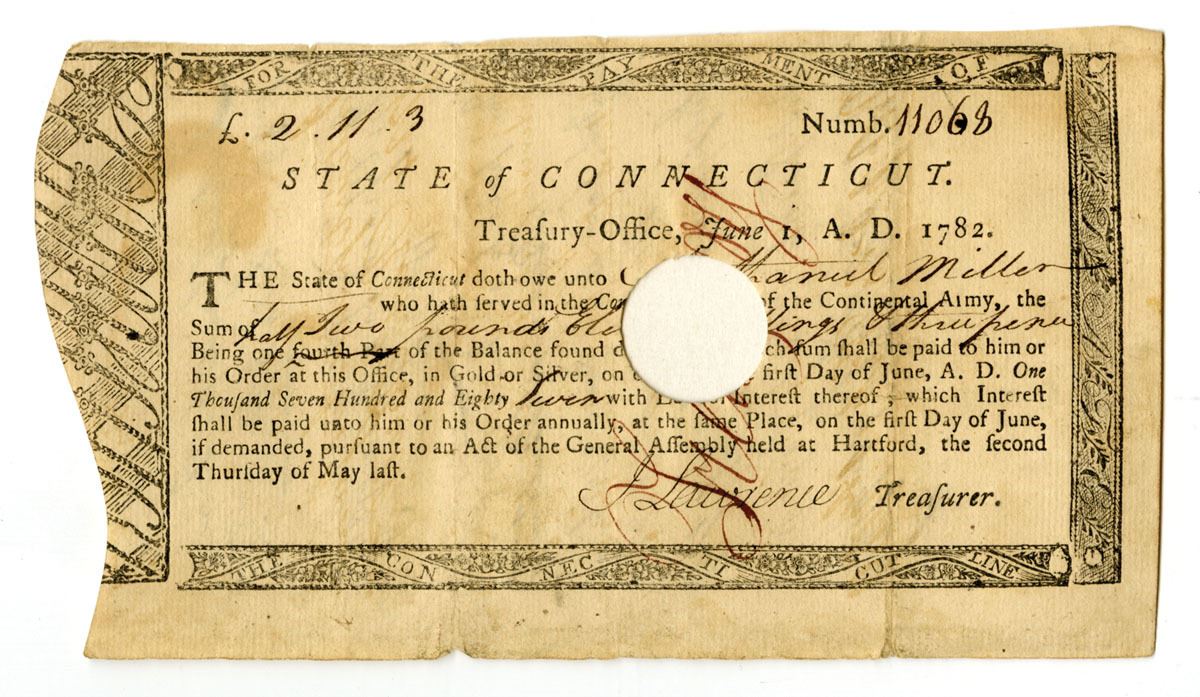 FOR THE PAYMENT OF
£. 2 . 11 . 3 Numb. 11068
STATE of CONNECTICUT.
Treaſury-Office, June 1, A. D. 1782.
THE State of Connecticut doth owe unto thaniel Miller
who hath ſerved in the Con of the Continental Army, the
Sum of Two pounds Ele lings & three pence
half
Being one fourth Part of the Balance found d ch ſum ſhall be paid to him or
his Order at this Office, in Gold or Silver, on firſt Day of June, A. D. One
Thouſand Seven Hundred and Eighty Seven with Intereſt thereof ; which Intereſt
ſhall be paid unto him or his Order annually, at the ſame Place, on the firſt Day of June,
if demanded, purſuant to an Act of the General Aſſembly held at Hartford, the ſecond
Thurſday of May laſt.
J Lawrence Treaſurer.
THE CONNECTICUT LINE